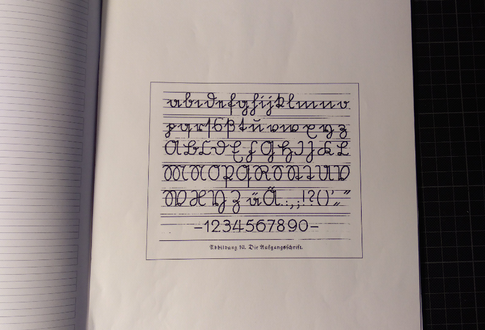 abcdefghijklmno
pqrſsßtŭvwxyz
ABCDEFGHIJKL
MNOPQRSTUV
WXYZ äÄ.:,;!?()'„“
–1234567890–
Abbildung 10. Die Ausgangsschrift.